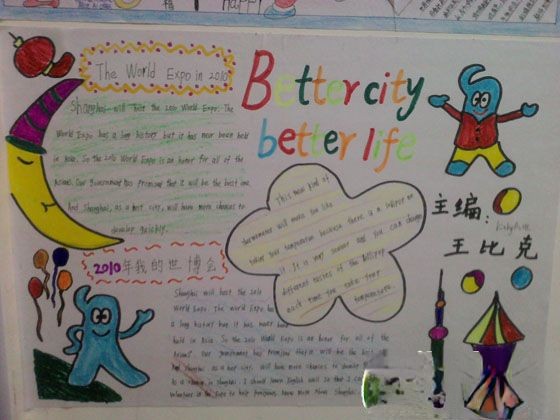 The World Expo in 2010
Better city
better life
Shanghai will host the 2010 World Expo. The
World Expo has a long history but it has never been held
in Asia. So the 2010 World Expo is an honor for all of the
Asians. Our government has promised that it will be the best one.
And Shanghai, as a host city, will have more chances to
develop quickly.
This new kind of
thermometer will make you like
taken your temperature because there is a lollipop on
it. It is very and you can change
different tastes of the lollipop
each time you take temp
temperature.
主编:
王比克
2010年我的世博会
Shanghai will host the 2010
World Expo. The World Expo has
a long history but it has never been
held in Asia. So the 2010 World Expo is an honor for all of the
Asians. Our government has promised it will be the best
And Shanghai as a host city. Will have more chances to
in Shanghai. I should learn English well so that I can
to Expo to help know more about Shanghai